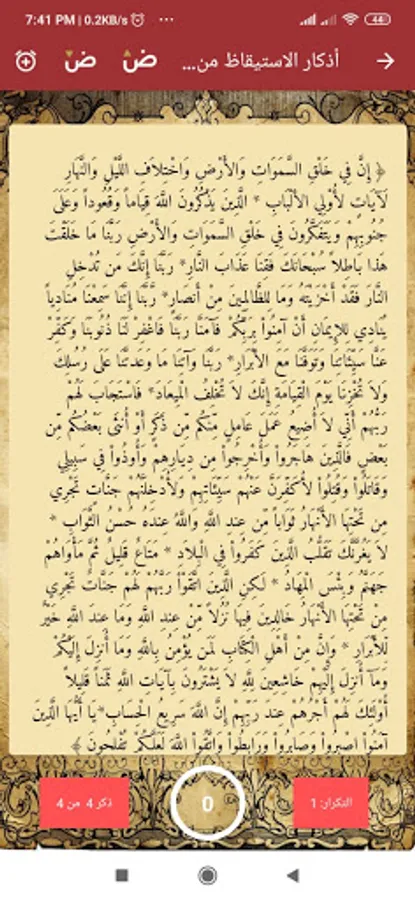 7:41 PM | 0.2KB/s ...
44
أذكار الاستيقاظ من...
ض ض
﴿ إِنَّ فِي خَلْقِ السَّمَوَاتِ وَالأَرْضِ وَاخْتِلاَفِ اللَّيْلِ وَالنَّهَارِ
لَآيَاتٍ لِأُوْلِي الأَلْبَابِ * الَّذِينَ يَذْكُرُونَ اللَّهَ قِيَاماً وَقُعُوداً وَعَلَىَ
جُنُوبِهِمْ وَيَتَفَكَّرُونَ فِي خَلْقِ السَّمَوَاتِ وَالأَرْضِ رَبَّنَا مَا خَلَقْتَ
هَذا بَاطِلاً سُبْحَانَكَ فَقِنَا عَذَابَ النَّارِ* رَبَّنَا إِنَّكَ مَن تُدْخِلِ
النَّارَ فَقَدْ أَخْزَيْتَهُ وَمَا لِلظَّالِمِينَ مِنْ أَنصَارٍ* رَّبَّنَا إِنَّنَا سَمِعْنَا مُنَادِياً
يُنَادِي لِلإِيمَانِ أَنْ آمِنُواْ بِرَبِّكُمْ فَآمَنَّا رَبَّنَا فَاغْفِرْ لَنَا ذُنُوبَنَا وَكَفِّرْ
عَنَّا سَيِّئَاتِنَا وَتَوَفَّنَا مَعَ الأبْرَارِ* رَبَّنَا وَآتِنَا مَا وَعَدتَّنَا عَلَى رُسُلِكَ
وَلاَ تُخْزِنَا يَوْمَ الْقِيَامَةِ إِنَّكَ لاَ تُخْلِفُ الْمِيعَادَ* فَاسْتَجَابَ لَهُمْ
رَبُّهُمْ أَنِّي لاَ أُضِيعُ عَمَلَ عَامِلٍ مِّنكُم مِّن ذَكَرٍ أَوْ أُنثَى بَعْضُكُم مِّن
بَعْضٍ فَالَّذِينَ هَاجَرُواْ وَأُخْرِجُواْ مِن دِيَارِهِمْ وَأُوذُواْ فِي سَبِيلِي
وَقَاتَلُواْ وَقُتِلُواْ لأُكَفِّرَنَّ عَنْهُمْ سَيِّئَاتِهِمْ وَلأُدْخِلَنَّهُمْ جَنَّاتٍ تَجْرِي
مِن تَحْتِهَا الأَنْهَارُ ثَوَاباً مِّن عِندِ اللَّهِ وَاللَّهُ عِندَهُ حُسْنُ الثَّوَابِ *
لاَ يَغُرَّنَّكَ تَقَلُّبُ الَّذِينَ كَفَرُواْ فِي الْبِلاَدِ * مَتَاعٌ قَلِيلٌ ثُمَّ مَأْوَاهُمْ
جَهَنَّمُ وَبِئْسَ الْمِهَادُ * لَكِنِ الَّذِينَ اتَّقَوْاْ رَبَّهُمْ لَهُمْ جَنَّاتٌ تَجْرِي
مِنْ تَحْتِهَا الأَنْهَارُ خَالِدِينَ فِيهَا نُزُلاً مِّنْ عِندِ اللَّهِ وَمَا عِندَ اللَّهِ خَيْرٌ
لِّلأَبْرَارِ * وَإِنَّ مِنْ أَهْلِ الْكِتَابِ لَمَن يُؤْمِنُ بِاللَّهِ وَمَا أُنزِلَ إِلَيْكُمْ
وَمَآ أُنزِلَ إِلَيْهِمْ خَاشِعِينَ لِلَّهِ لاَ يَشْتَرُونَ بِآيَاتِ اللَّهِ ثَمَناً قَلِيلاً
أُوْلَئِكَ لَهُمْ أَجْرُهُمْ عِندَ رَبِّهِمْ إِنَّ اللَّهَ سَرِيعُ الْحِسَابِ*يَا أَيُّهَا الَّذِينَ
آمَنُواْ اصْبِرُواْ وَصَابِرُواْ وَرَابِطُواْ وَاتَّقُواْ اللَّهَ لَعَلَّكُمْ تُفْلِحُونَ ﴾
التكرار: 1
0
ذكر 4 من 4